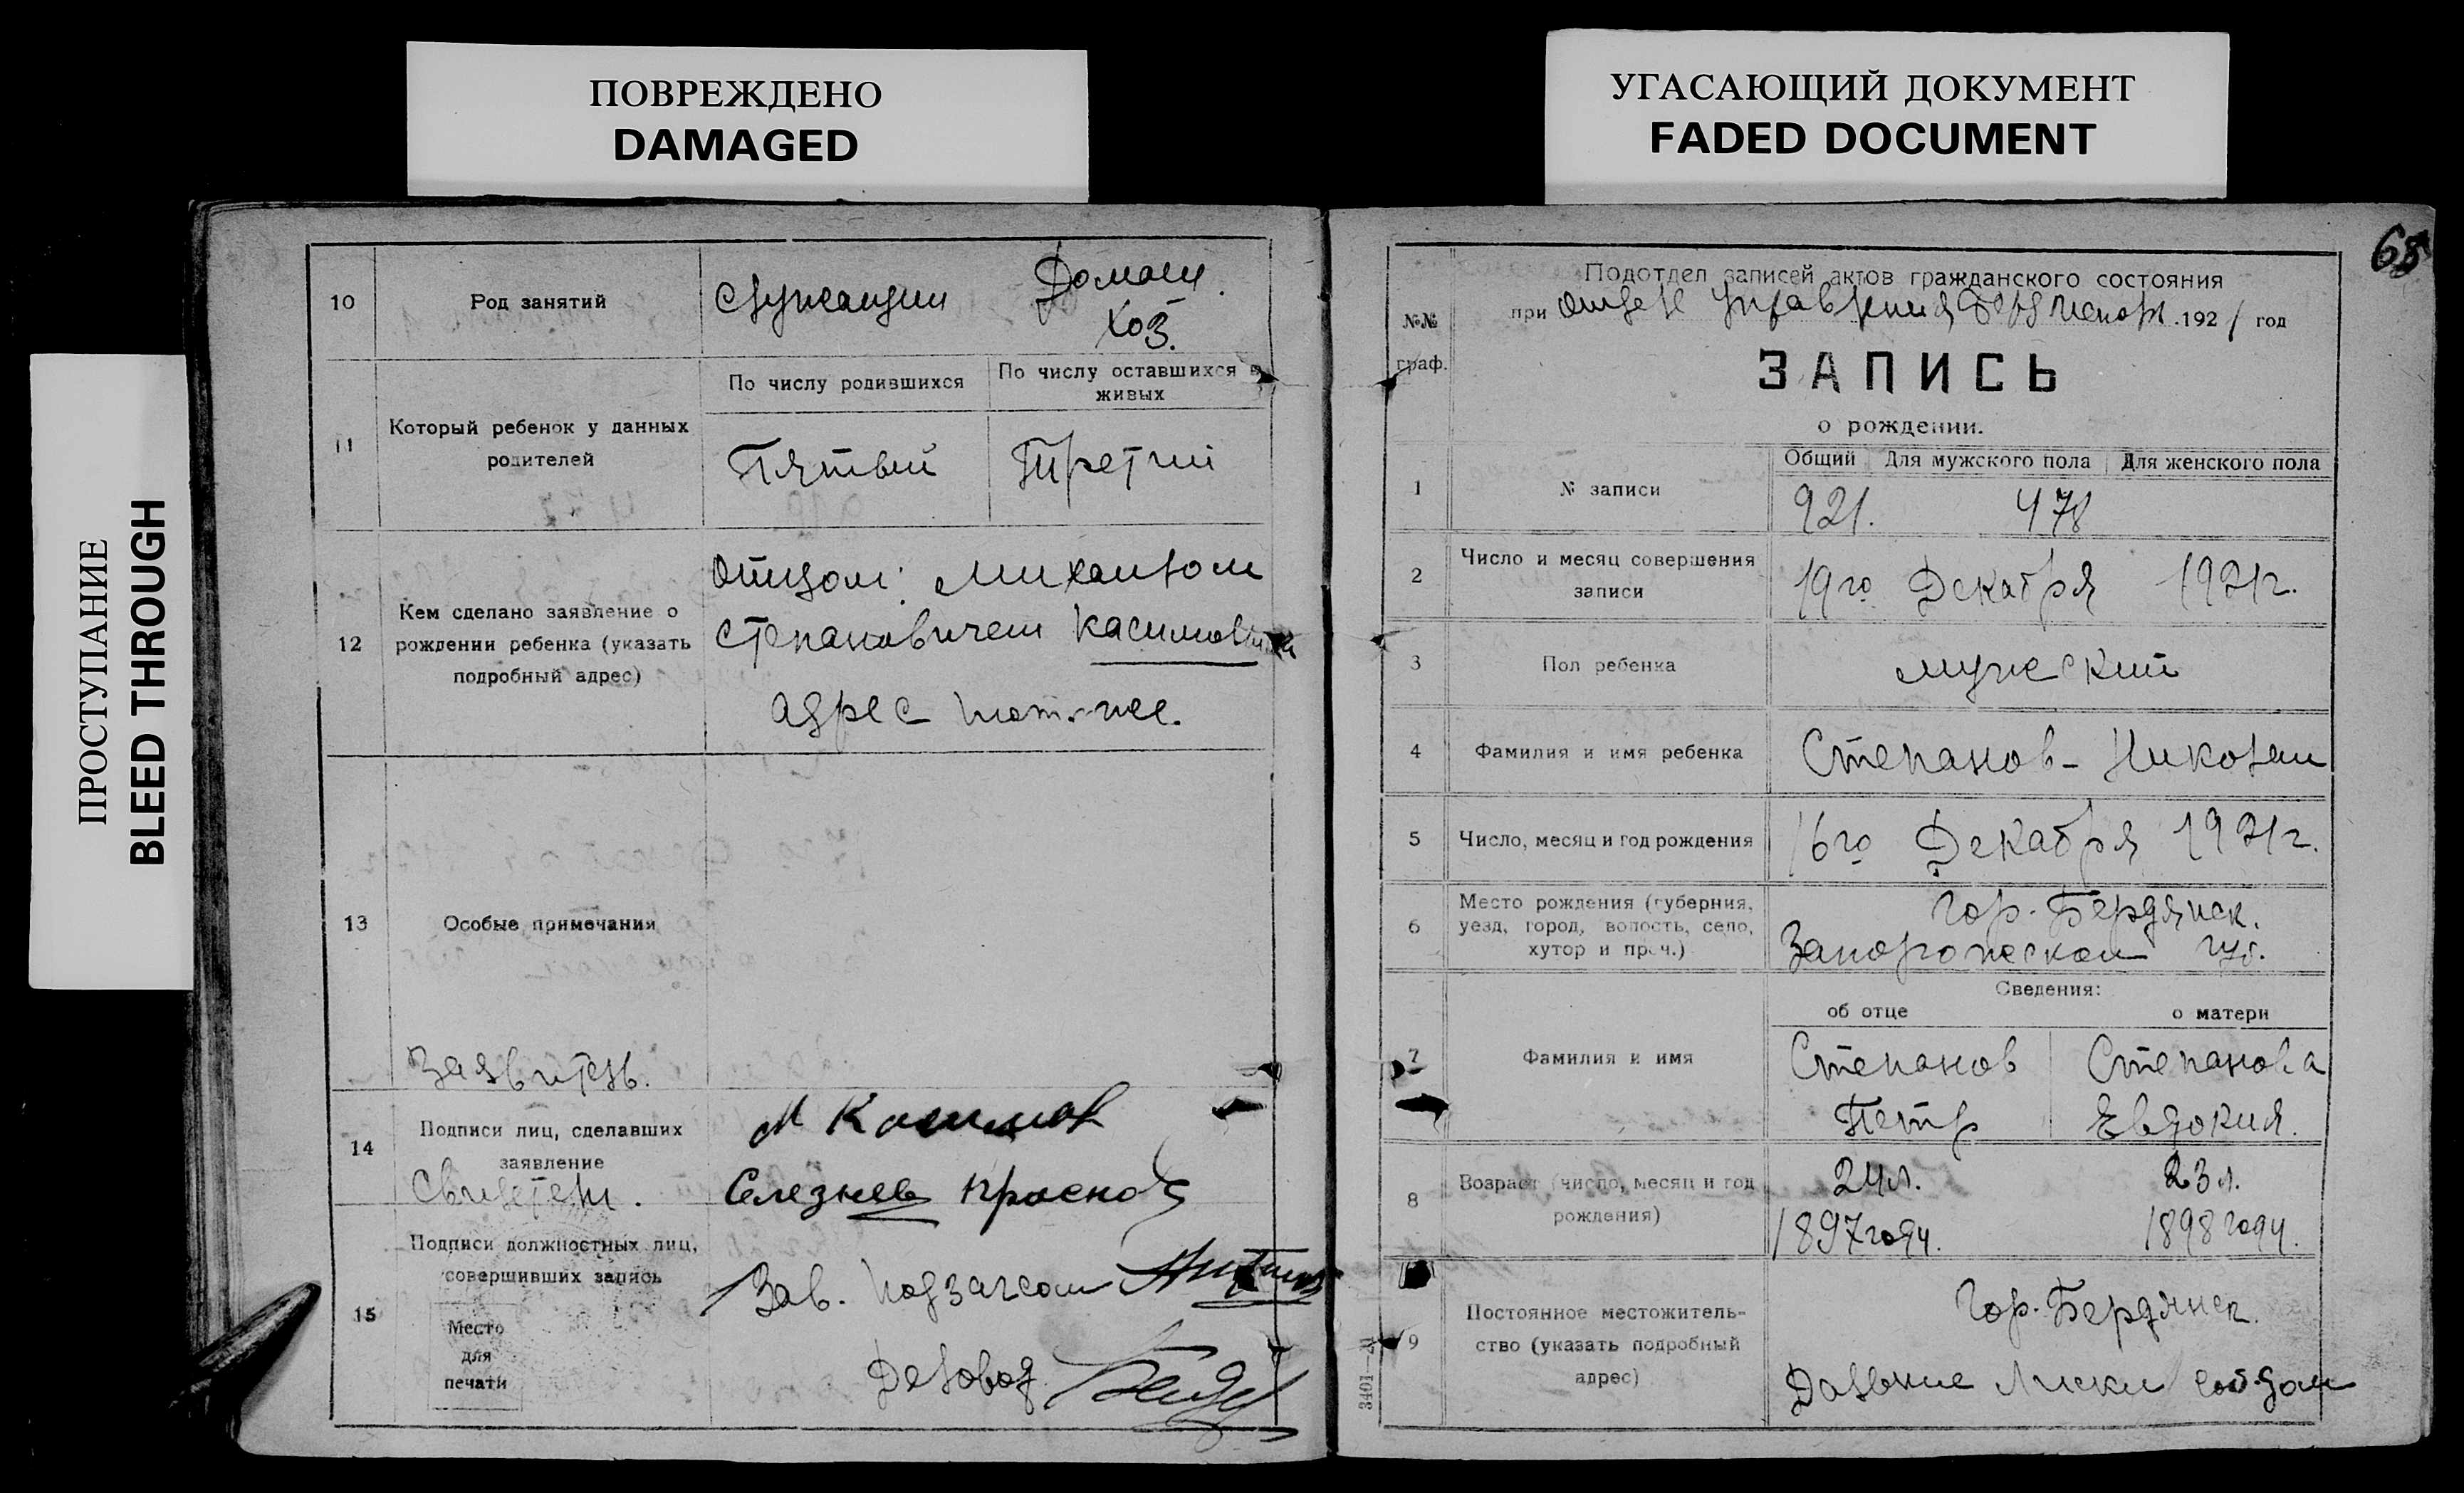 ПОВРЕЖДЕНО
DAMAGED
УГАСАЮЩИЙ ДОКУМЕНТ
FADED DOCUMENT
ПРОСТУПАНИЕ
BLEED THROUGH
10
Род занятий
Служащий
Домаш.
хоз.
11
Который ребенок у данных
родителей
По числу родившихся
По числу оставшихся в
живых
Пятый
Третий
12
Кем сделано заявление о
рождении ребенка (указать
подробный адрес)
Отцом: Михаилом
Степановичем Касимовым
адрес
13
Особые примечания
Заявитель.
14
Подписи лиц, сделавших
заявление
М Касимов
Свидетели.
Селезнев
15
Подписи должностных лиц,
совершивших запись
Место
для
печати
Зав. Подзагсом
Деловод
68
№№
граф.
Подотдел записей актов гражданского состояния
при Отделе Управления 1921 год
ЗАПИСЬ
о рождении.
1
№ записи
Общий
Для мужского пола
Для женского пола
921.
478
2
Число и месяц совершения
записи
19го Декабря 1921г.
3
Пол ребенка
мужский
4
Фамилия и имя ребенка
Степанов - Николай
5
Число, месяц и год рождения
16го Декабря 1921г.
6
Место рождения (губерния,
уезд, город, волость, село,
хутор и проч.)
Гор. Бердянск.
Запорожской губ.
Сведения:
об отце
о матери
7
Фамилия и имя
Степанов
Степанова
Петр
Евдокия.
8
Возраст (число, месяц и год
рождения)
24л.
23л.
1897 году.
1898 году.
9
Постоянное местожитель-
ство (указать подробный
адрес)
Гор. Бердянск.
Дальние Лиски соб. дом
3401—21